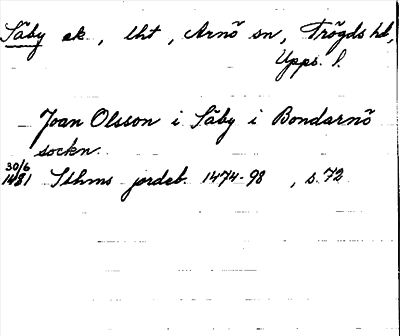 Säby ek, lht, Arnö sn, Trögds hd,
Upps. l.
Joan Olsson i Säby i Bondarnö
sockn.
30/6
1481 Sthms jordeb. 1474-98, s. 72